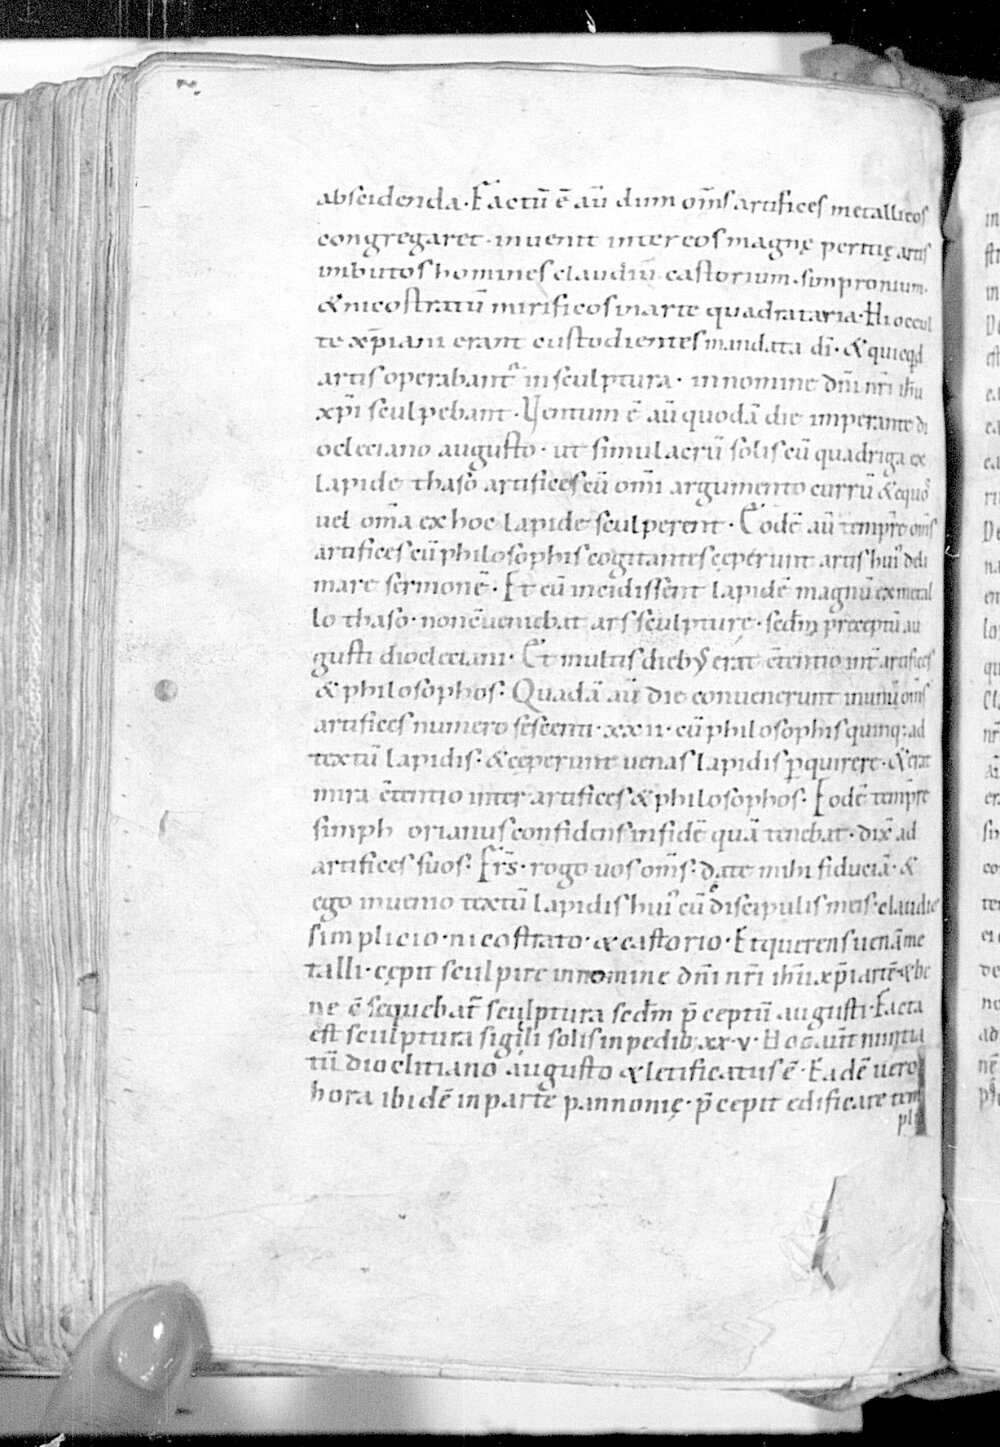 abscidenda. Factū ē aū dum om̄s artifices metallicos
congregaret. inuenit inter eos magnę peritię artis
inbutos homines claudiū. castorium. simpronium.
& nicostratū mirificos in arte quadrataria. Hi occul
te xp̄iani erant custodientes mandata dī. & quicqđ
artis operabant᷑ in sculptura. in nomine dn̄i nr̄i ih̄u
xp̄i sculpebant. Uentum ē aū quodā die imperante di
ocleciano augusto. ut simulacrū solis cū quadriga ex
lapide thaso artifices cū om̄i argumento currū & equoˢ
uel om̄a ex hoc lapide sculperent. Eodē aū tempr̄e om̄s
artifices cū philosophis cogitantes cęperunt artis hui᾽ deli
mare sermonē. Et cū incidissent lapidē magnū ex metal
lo thaso. non ēueniebat ars sculpturę. secđm preceptū au
gusti diocleciani. Et multis dieb; erat ētentio int̄ artifices
& philosophos. Quadā aū die conuenerunt in unū om̄s
artifices numero sescenti. xx ii. cū philosophis quinq; ad
textū lapidis. & ceperunt uenas lapidis ꝑquirere. & erat
mira ētentio inter artifices & philosophos. Eodē tempr̄e
simph orianus confidens in fidē quā tenebat. dix̄ ad
artifices suos. Fr̄s. rogo uos om̄s. date mihi fiduciā. &
ego inuenio textū lapidis hui᾽ cū discipulis meis. claudio
simplicio. nicostrato. & castorio. Et querens uenā me
talli. cępit sculpire in nomine dn̄i nr̄i ih̄u xp̄i artē. & be
ne ēsequebat᷑ sculptura secđm p̄ceptū augusti. Facta
est sculptura sigilli solis in pedib; xx. v. Hoc aūt nuntia
tū dioclitiano augusto & letificatus ē. Eadē uero
hora ibidē in parte pannonię. p̄cepit edificare tem
pli